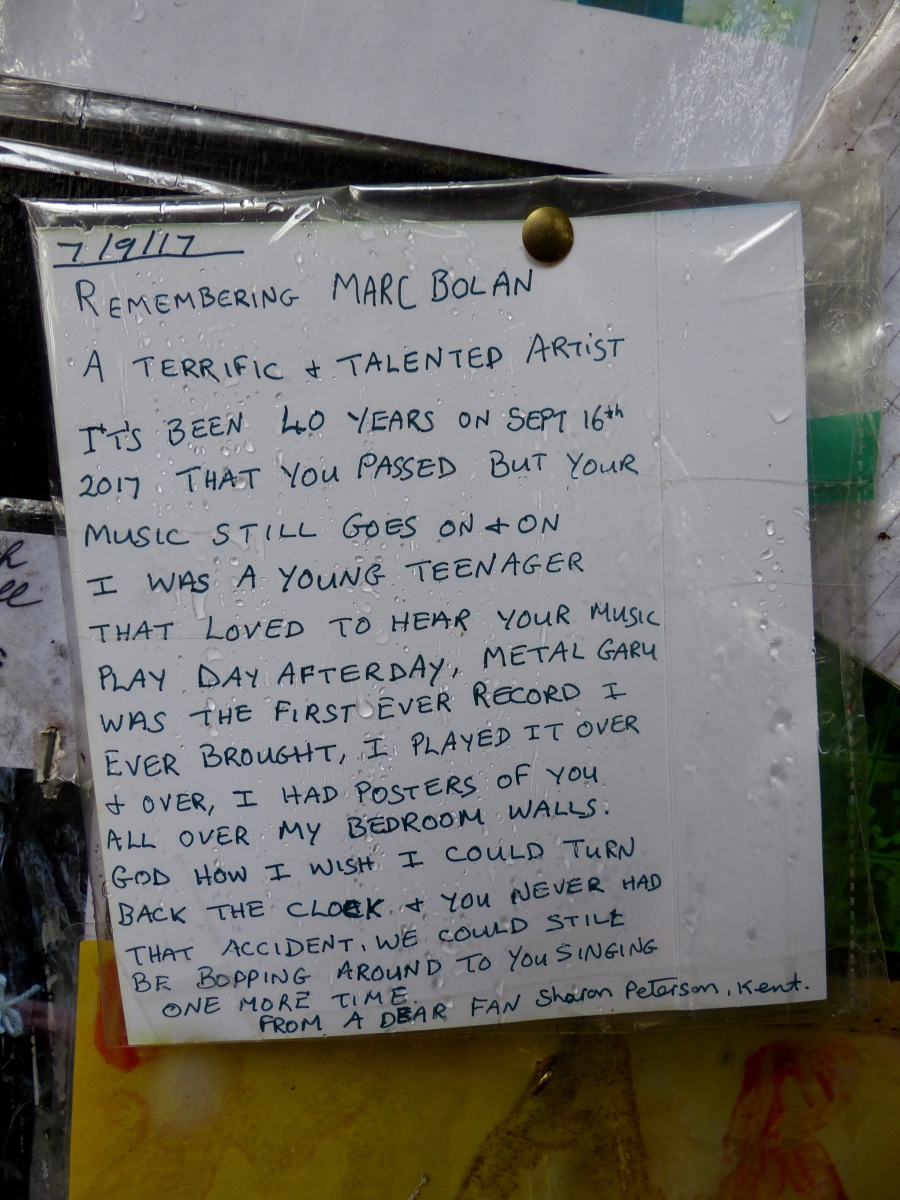 7/9/17
REMEMBERING MARC BOLAN
A TERRIFIC + TALENTED ARTIST
IT'S BEEN 40 YEARS ON SEPT 16th
2017 THAT YOU PASSED BUT YOUR
MUSIC STILL GOES ON + ON
I WAS A YOUNG TEENAGER
THAT LOVED TO HEAR YOUR MUSIC
PLAY DAY AFTERDAY, METAL GARU
WAS THE FIRST EVER RECORD I
EVER BROUGHT, I PLAYED IT OVER
+ OVER, I HAD POSTERS OF YOU
ALL OVER MY BEDROOM WALLS.
GOD HOW I WISH I COULD TURN
BACK THE CLOCK + YOU NEVER HAD
THAT ACCIDENT. WE COULD STILL
BE BOPPING AROUND TO YOU SINGING
ONE MORE TIME.
FROM A DEAR FAN Sharon Peterson, Kent.